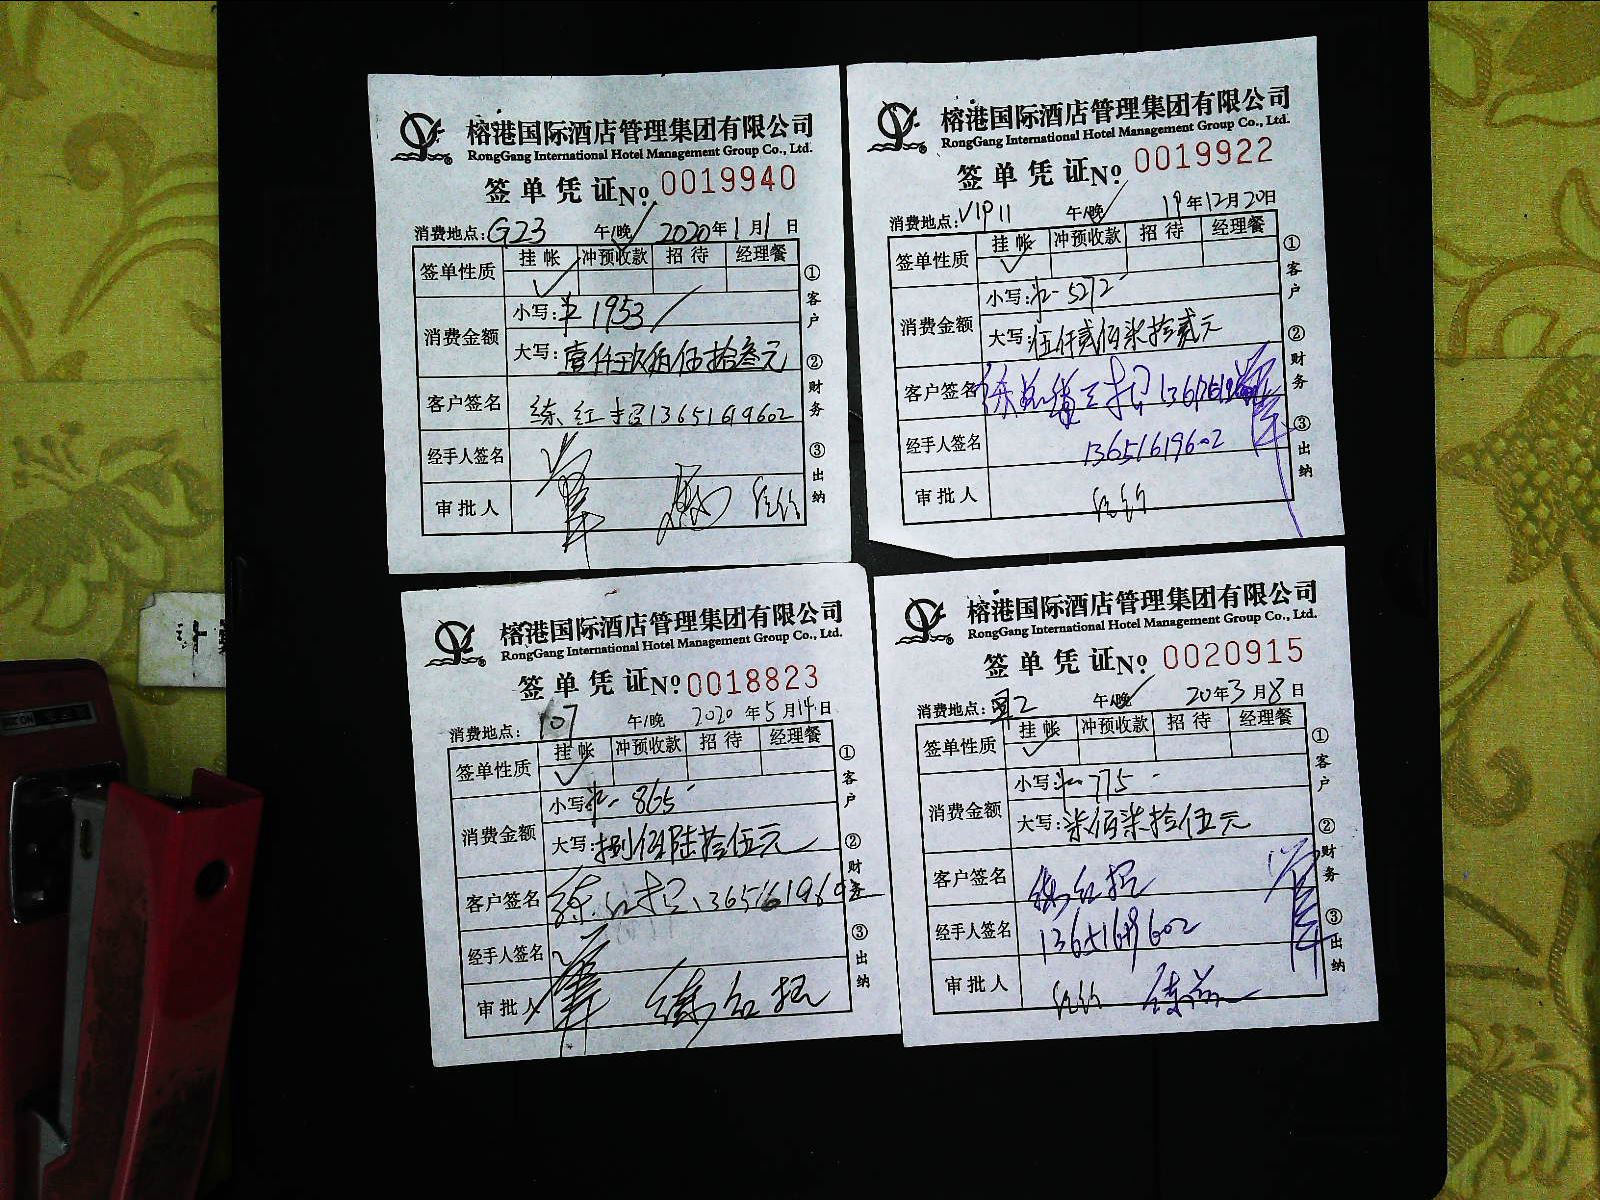 榕港国际酒店管理集团有限公司
RongGang International Hotel Management Group Co., Ltd.
签单凭证 № 0019940
消费地点: G23 午/晚 2020年1月1日
签单性质 挂帐 冲预收款 招待 经理餐
消费金额 小写: 1953
大写: 壹仟玖佰伍拾叁元
客户签名 练红招 13651619602
经手人签名
审批人
①客户 ②财务 ③出纳
榕港国际酒店管理集团有限公司
RongGang International Hotel Management Group Co., Ltd.
签单凭证 № 0019922
消费地点: VIP11 午/晚 19年12月20日
签单性质 挂帐 冲预收款 招待 经理餐
消费金额 小写: 5272
大写: 伍仟贰佰柒拾贰元
客户签名
经手人签名 13651619602
审批人
①客户 ②财务 ③出纳
榕港国际酒店管理集团有限公司
RongGang International Hotel Management Group Co., Ltd.
签单凭证 № 0018823
消费地点: 107 午/晚 2020年5月14日
签单性质 挂帐 冲预收款 招待 经理餐
消费金额 小写: 865
大写: 捌佰陆拾伍元
客户签名 练红招
经手人签名
审批人 练红招
①客户 ②财务 ③出纳
榕港国际酒店管理集团有限公司
RongGang International Hotel Management Group Co., Ltd.
签单凭证 № 0020915
消费地点: 午/晚 20年3月8日
签单性质 挂帐 冲预收款 招待 经理餐
消费金额 小写: 775
大写: 柒佰柒拾伍元
客户签名 练红招
经手人签名 13651619602
审批人
①客户 ②财务 ③出纳